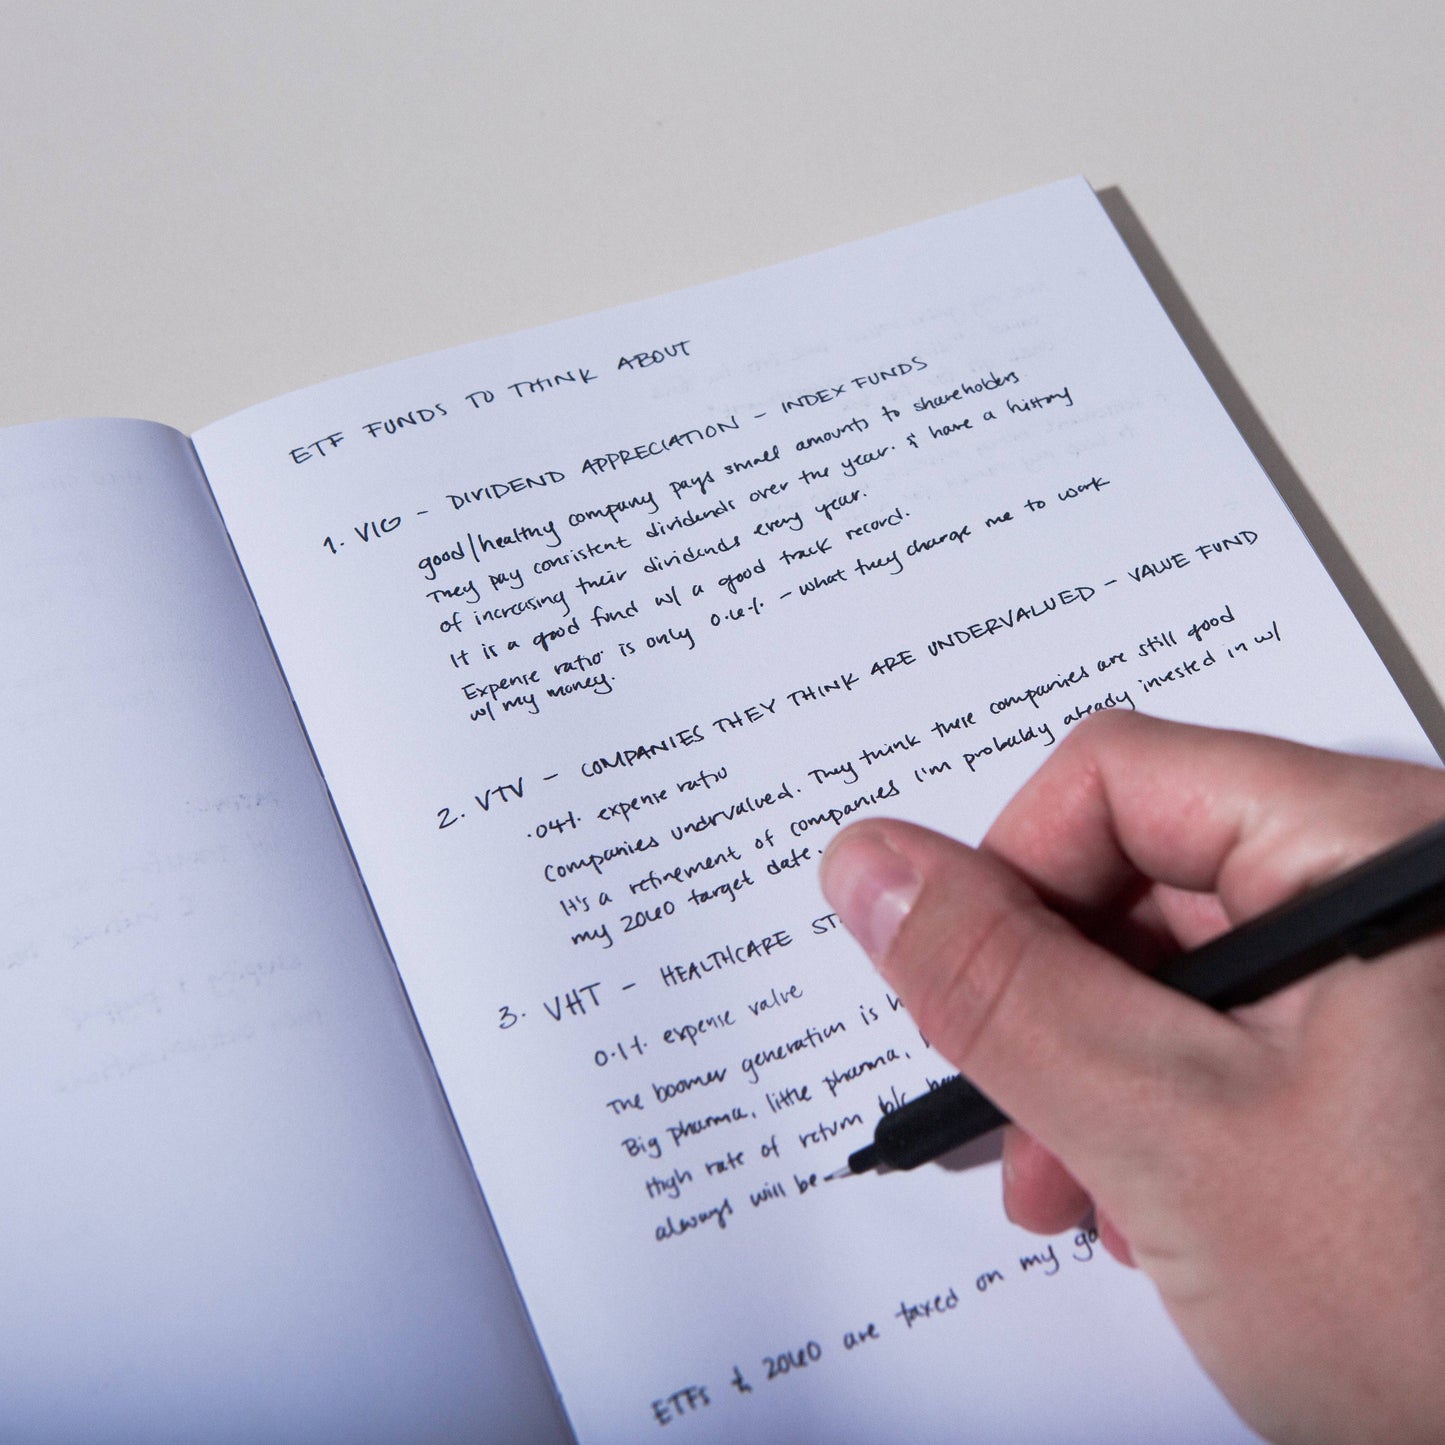 ETF FUNDS TO THINK ABOUT
1. VIG - DIVIDEND APPRECIATION - INDEX FUNDS
good/healthy company pays small amounts to shareholders
They pay consistent dividends over the year. & have a history
of increasing their dividends every year.
It is a good fund w/ a good track record.
Expense ratio is only - what they charge me to work
w/ my money.
2. VTV - COMPANIES THEY THINK ARE UNDERVALUED - VALUE FUND
.04% expense ratio
Companies undrvalued. They think these companies are still good
It's a refinement of companies I'm probably already invested in w/
my 2040 target date.
3. VHT - HEALTHCARE
0.1% expense value
The boomer generation is
Big pharma, little pharma,
High rate of return b/c
always will be
ETFs & 2040 are taxed on my